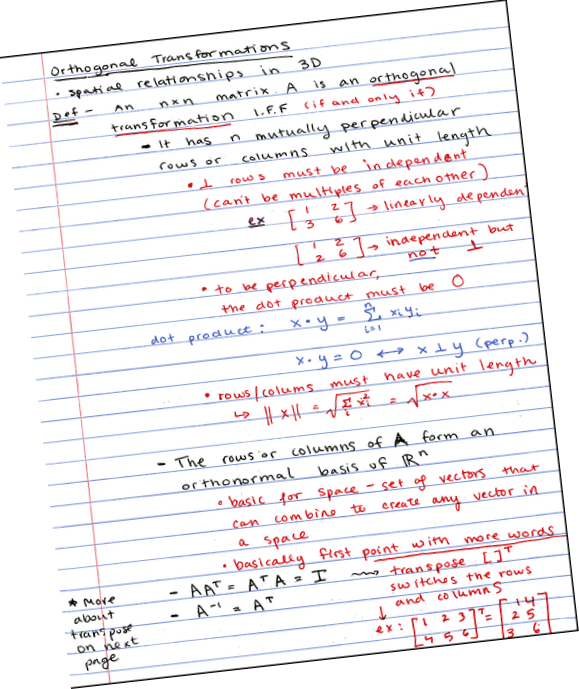 Orthogonal Transformations
• spatial relationships in 3D
Def - An nxn matrix A is an orthogonal
transformation I.F.F (if and only if)
- It has n mutually perpendicular
rows or columns with unit length
• ⊥ rows must be independent
(can't be multiples of each other)
ex [1 2; 3 6] → linearly dependent
[1 2; 2 6] → independent but
not ⊥
• to be perpendicular,
the dot product must be 0
dot product: x•y = n Σ i=1 xᵢyᵢ
x•y = 0 ↔ x ⊥ y (perp.)
• rows/colums must have unit length
↳ ||x|| = √Σᵢ xᵢ² = √x•x
- The rows or columns of A form an
orthonormal basis of ℝⁿ
• basic for space - set of vectors that
can combine to create any vector in
a space
• basically first point with more words
- AAᵀ = AᵀA = I ⇝ transpose [ ]ᵀ
switches the rows
and columns
- A⁻¹ = Aᵀ
↓
ex: [1 2 3; 4 5 6]ᵀ = [1 4; 2 5; 3 6]
* More
about
transpose
on next
page